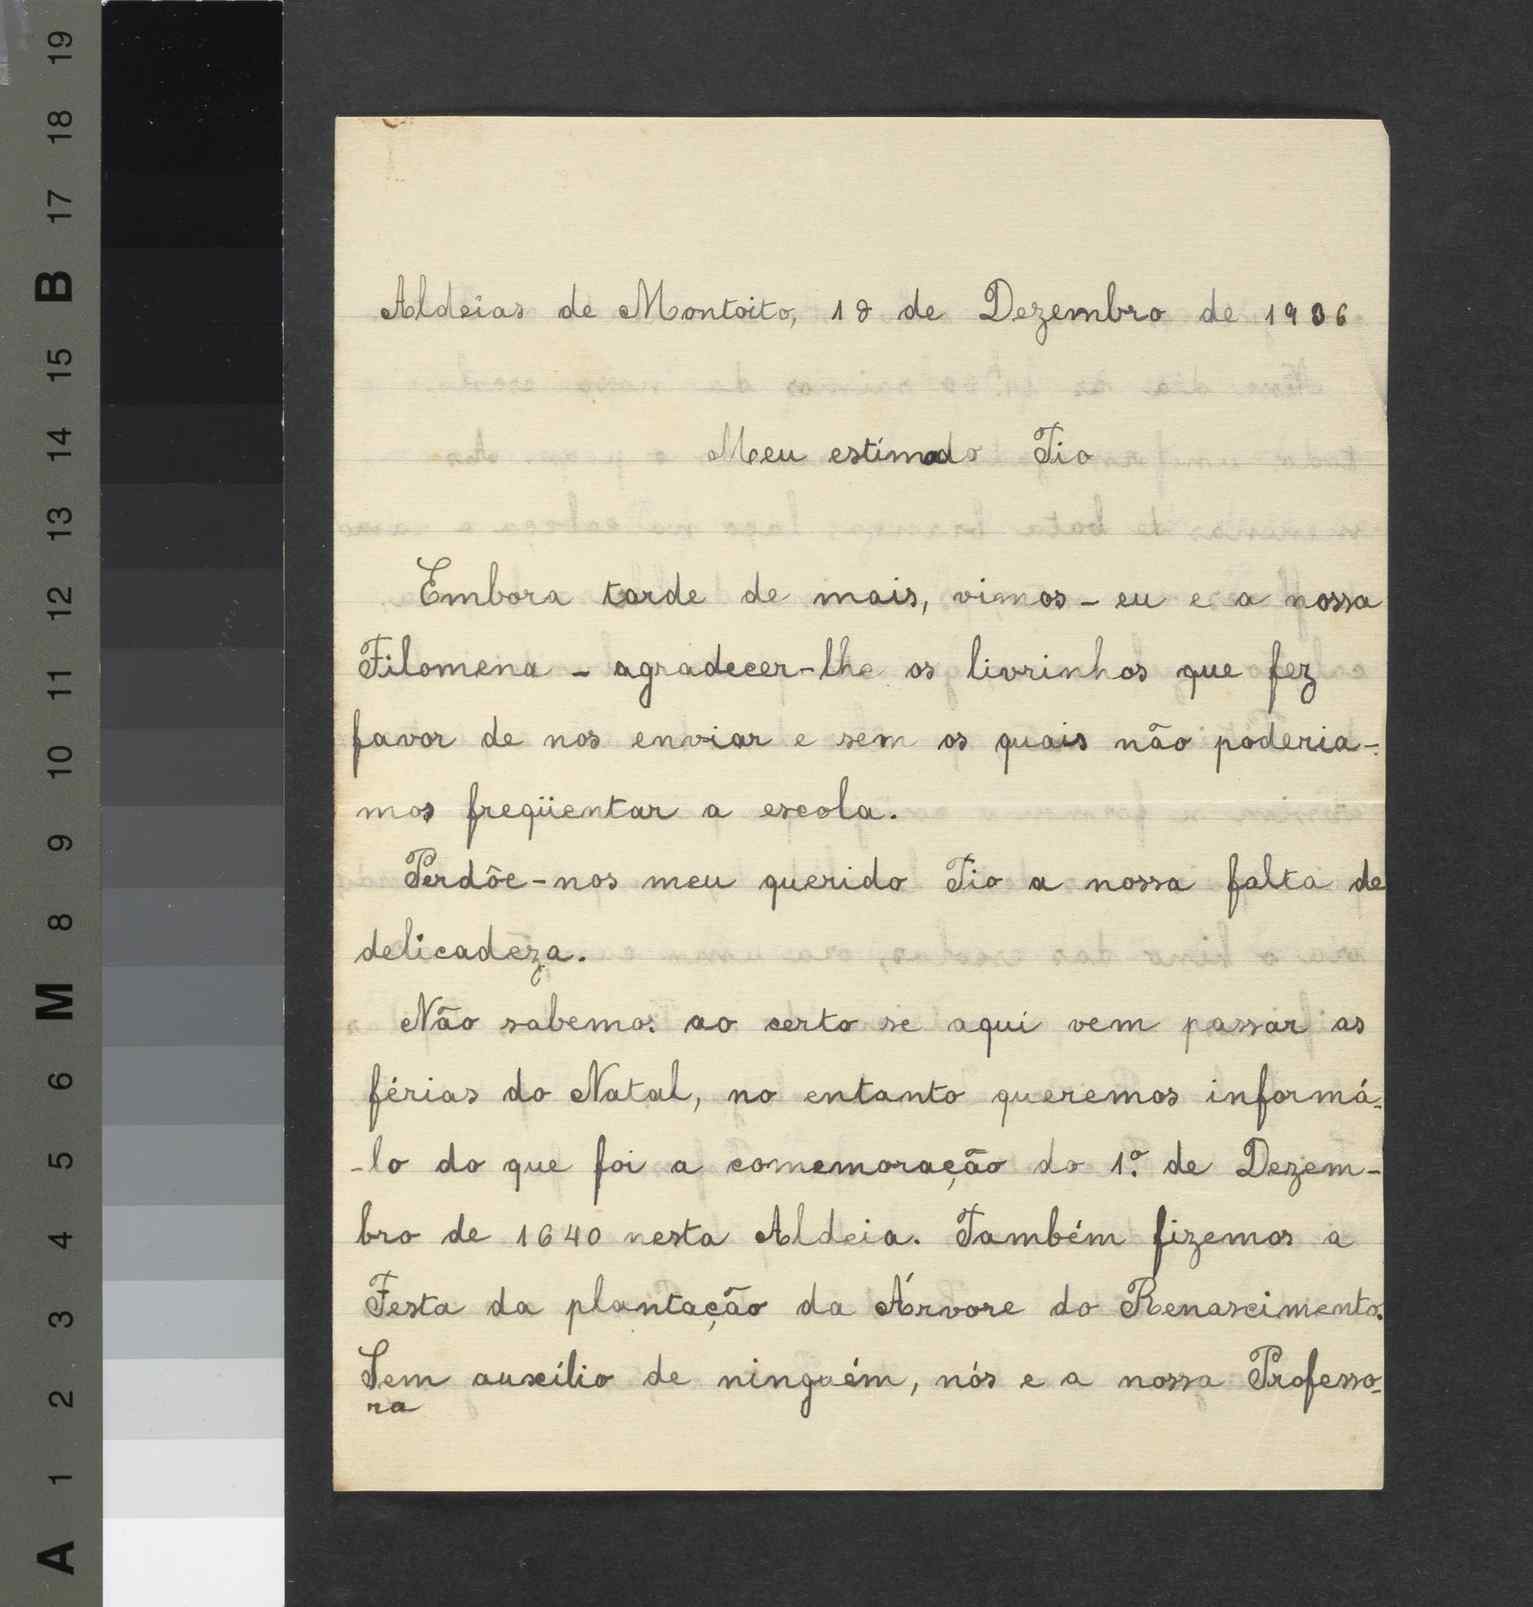 Aldeias de Montoito, 18 de Dezembro de 1936
Meu estimado Tio
Embora tarde de mais, vimos - eu e a nossa
Filomena - agradecer-lhe os livrinhos que fez
favor de nos enviar e sem os quais não poderia-
mos freqüentar a escola.
Perdôe-nos meu querido Tio a nossa falta de
delicadeza.
Não sabemos ao certo se aqui vem passar as
férias do Natal, no entanto queremos informá-
-lo do que foi a comemoração do 1.º de Dezem-
bro de 1640 nesta Aldeia. Também fizemos a
Festa da plantação da Árvore do Renascimento.
Sem auxílio de ninguém, nós e a nossa Professo-
ra
A 1 2 3 4 5 6 M 8 9 10 11 12 13 14 15 B 17 18 19